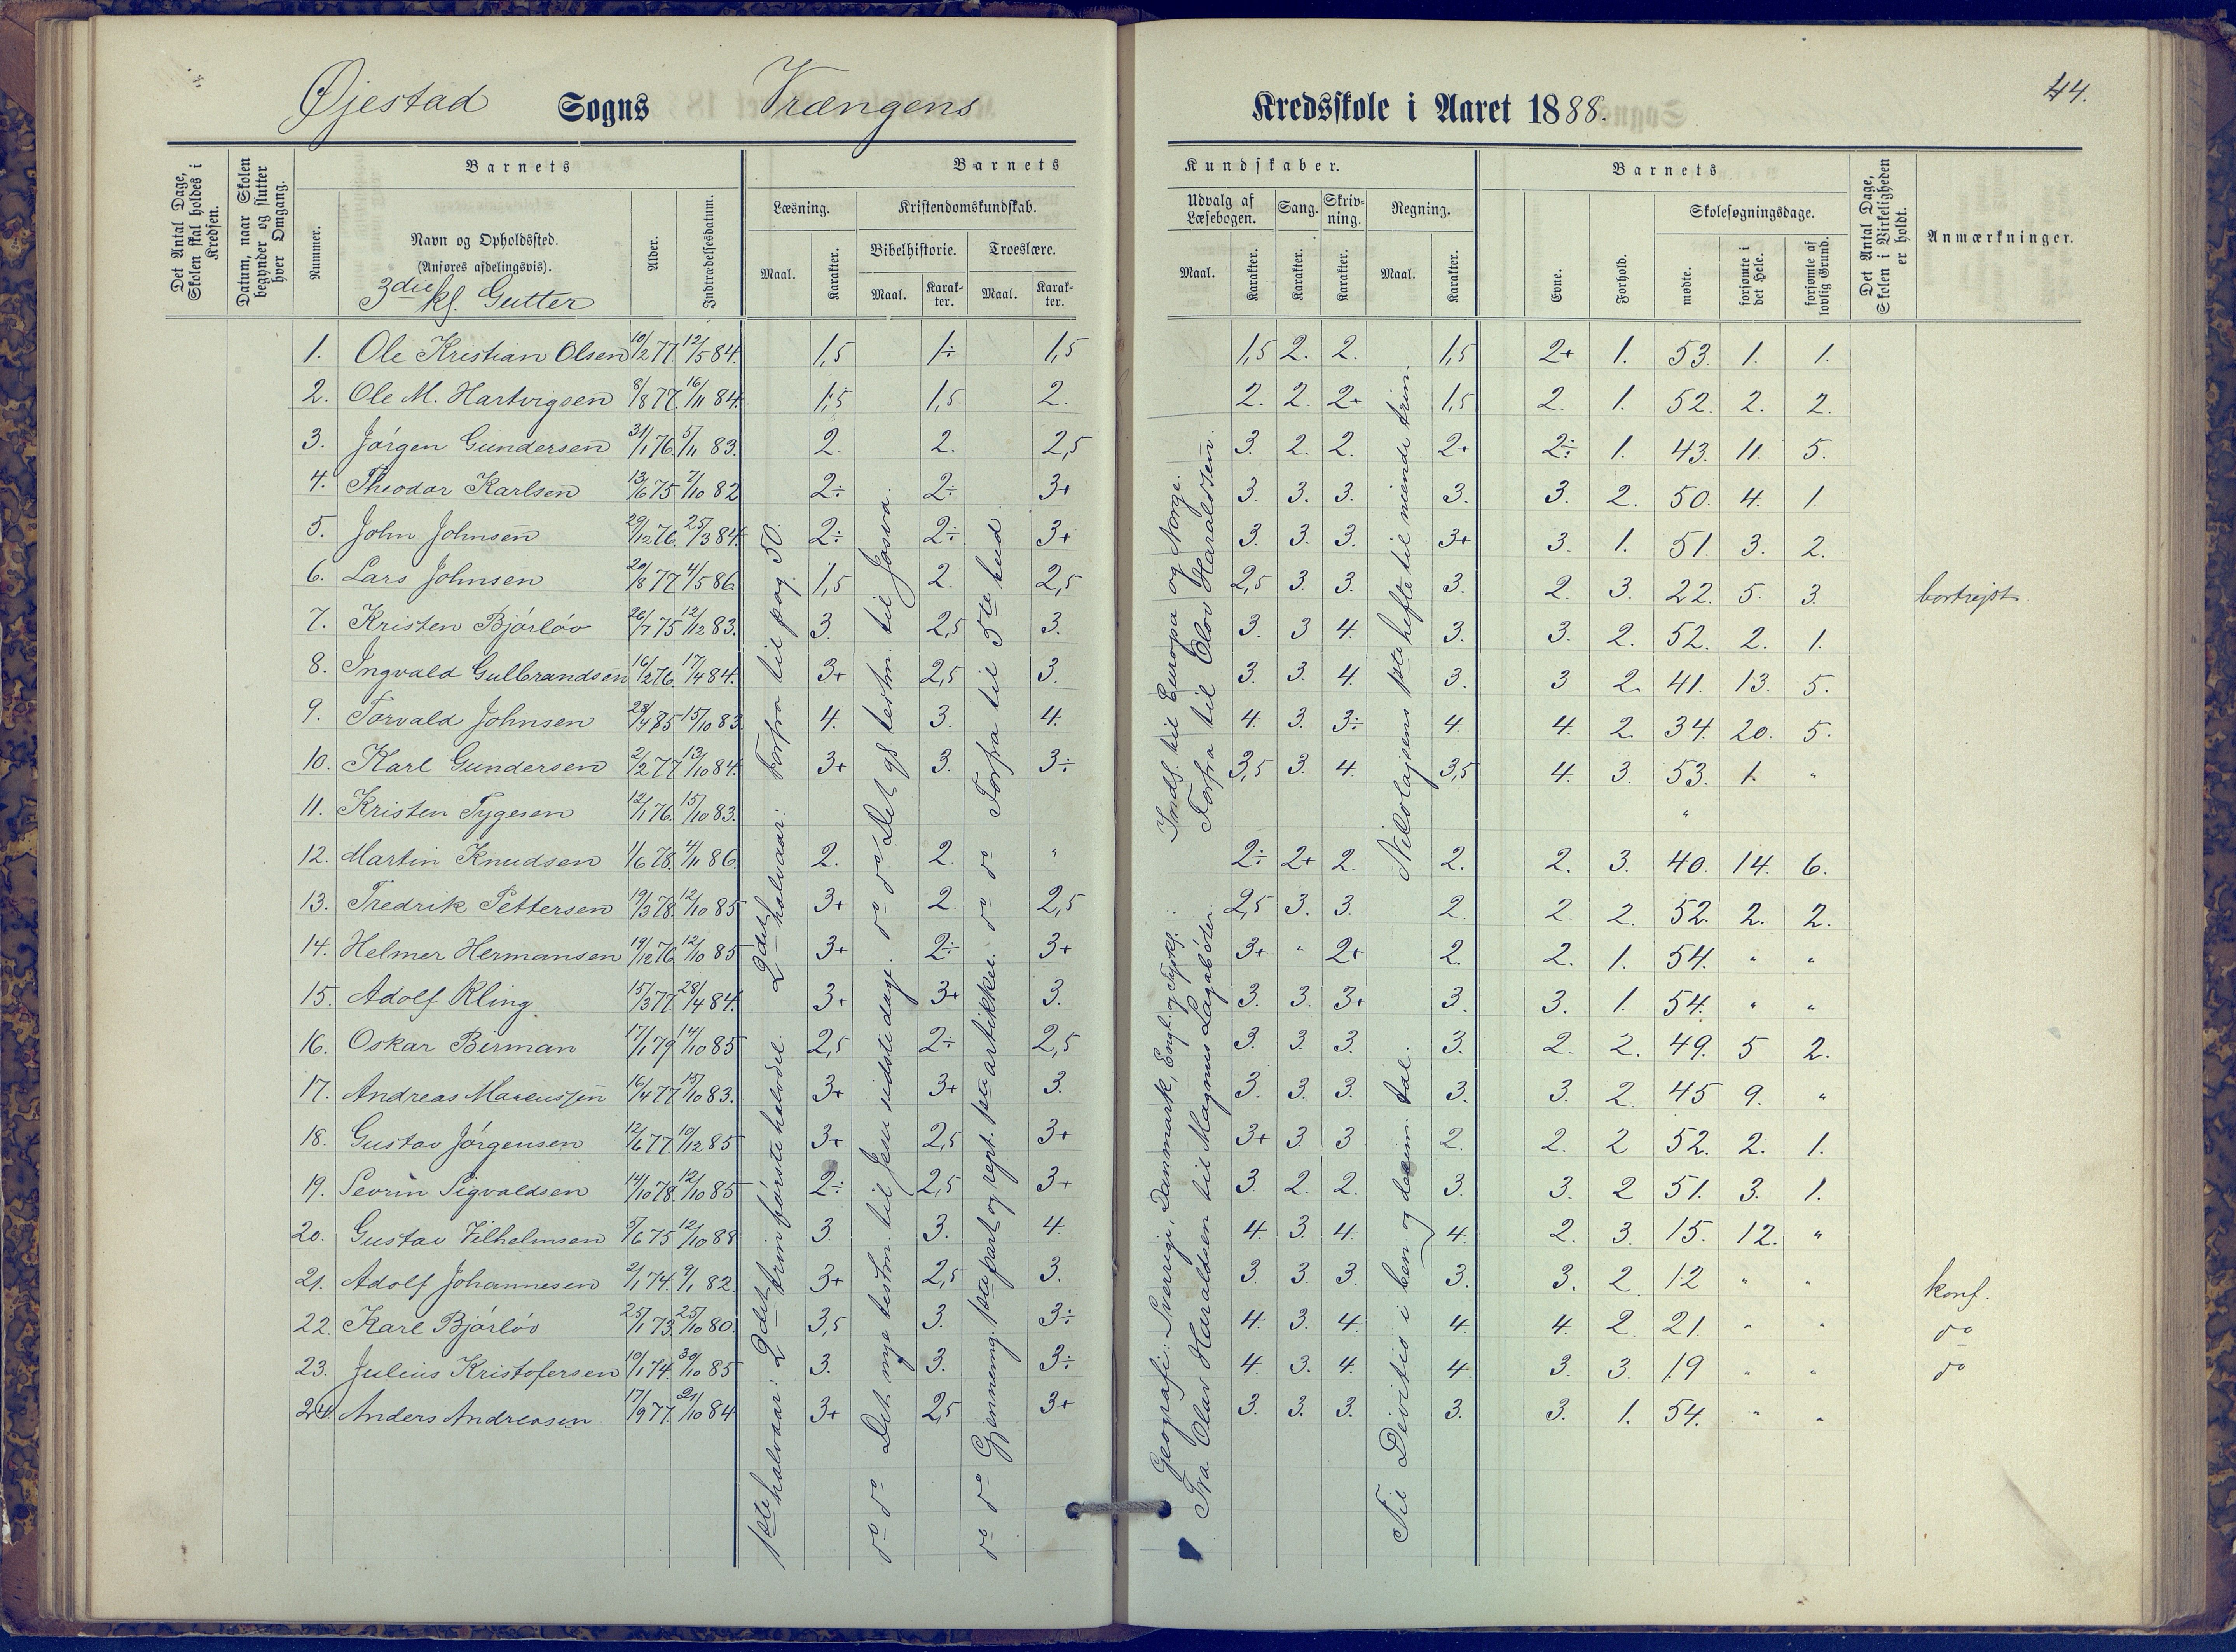 44.
Øjestad Sogns Vrængens Kredsskole i Aaret 1888.
Det Antal Dage, Skolen skal holdes i Kredsen.
Datum, naar Skolen begynder og slutter hver Omgang.
Barnets
Nummer.
Navn og Opholdssted.
(Anføres afdelingsvis).
3die kl. Gutter
Alder.
Indtrædelsesdatum.
Barnets Kundskaber.
Læsning. Kristendomskundskab. Udvalg af Læsebogen. Sang. Skrivning. Regning.
Bibelhistorie. Troeslære.
Maal. Karakter. Maal. Karakter. Maal. Karakter. Maal. Karakter. Karakter. Karakter. Maal. Karakter.
Barnets
Evne. Forhold. Skolesøgningsdage.
mødte. forsømte i det Hele. forsømte af lovlig Grund.
Det Antal Dage, Skolen i Virkeligheden er holdt.
Anmærkninger.
1. Ole Kristian Olsen 10/2 77. 12/5 84. 1,5 1÷ 1,5 1,5 2. 2. 1,5 2+ 1. 53. 1. 1.
2. Ole M. Hartvigsen 8/8 77. 16/11 84. 1,5 1,5 2. 2. 2. 2+ 1,5 2. 1. 52. 2. 2.
3. Jørgen Gundersen 31/1 76. 5/11 83. 2. 2. 2,5 3. 2. 2. 2+ 2÷ 1. 43. 11. 5.
4. Theodor Karlsen 13/6 75 7/10 82 2÷ 2÷ 3+ 3. 3. 3. 3. 3. 2. 50. 4. 1.
5. John Johnsen 29/12 76. 25/3 84. 2÷ 2÷ 3+ 3. 3. 3. 3+ 3. 1. 51. 3. 2.
6. Lars Johnsen 20/8 77 4/5 86. 1,5 2. 2,5 2,5 3. 3. 3. 2. 3. 22. 5. 3. bortrejst.
7. Kristen Bjørløv 26/7 75 12/12 83. 3. 2,5 3. 3. 3 4. 3. 3. 2. 52. 2. 1.
8. Ingvald Gulbrandsen 16/2 76. 17/4 84. 3+ 2,5 3. 3. 3. 4. 3. 3 2. 41. 13. 5.
9. Torvald Johnsen 15/10 83. 4. 3. 4. 4. 3. 3÷ 4. 4. 2. 34. 20. 5.
10. Karl Gundersen 2/2 77 13/10 84. 3+ 3. 3÷ 3,5 3. 4. 3,5 4. 3. 53. 1. "
11. Kristen Tygesen 12/1 76. 15/10 83. "
12. Martin Knudsen 1/6 78. 4/11 86. 2. 2. " 2÷ 2+ 2. 2. 2. 3. 40. 14. 6.
13. Fredrik Pettersen 19/3 78. 12/10 85 3+ 2. 2,5 2,5 3. 3. 2. 2. 2. 52. 2. 2.
14. Helmer Hermansen 19/12 76. 12/10 85 3+ 2÷ 3+ 3+ " 2+ 2. 2. 1. 54. " "
15. Adolf Kling. 15/3 77. 28/4 84. 3+ 3+ 3. 3. 3. 3+ 3. 3. 1. 54. " "
16. Oskar Birman 17/1 79 14/10 85 2,5 2÷ 2,5 3. 3. 3. 3. 2. 2. 49. 5 2.
17. Andreas Marcussen 16/4 77 15/10 83. 3+ 3+ 3. 3. 3. 3. 3. 3. 2. 45 9. "
18. Gustav Jørgensen 12/6 77. 10/12 85 3+ 2,5 3+ 3+ 3. 3 2. 2. 2 52. 2. 1.
19. Sevrin Sigvaldsen 14/10 78. 12/10 85 2÷ 2,5 3+ 3. 2. 2. 3. 3. 2 51. 3. 1.
20. Gustav Vilhelmsen 5/6 75 12/10 88 3. 3. 4. 4. 3. 4. 4. 2. 3. 15. 12. "
21. Adolf Johannesen 2/1 74. 9/1 82. 3+ 2,5 3. 3. 3. 3. 3. 3. 2. 12 " " konf.
22. Karl Bjørløv 25/1 73. 25/10 80. 3,5 3. 3÷ 4. 3. 4. 4. 4. 2. 21. " " do
23. Julius Kristofersen 10/1 74. 30/10 85 3. 3. 3÷ 4. 3. 4. 4 3. 3. 19 " " do
24. Anders Andreasen 17/9 77. 21/10 84 3+ 2,5 3+ 3. 3. 3. 3. 3. 1. 54. " "
1ste halvaar: 2det trin første halvdel. 2det halvaar: Forfra til pag. 50.
do do Det nye testm. til Jesu sidste dage. do do Det gl. testm. til Josva.
do do Gjennemg. 1ste part og rept. 1ste artikkel. do do Forfra til 5te bud.
Geografi: Sverrige, Danmark, Engl. og Tyskl.: Indl. til Europa og Norge.
Fra Olav Haraldsen til Magnus Lagabøter. Forfra til Olav Haraldssen.
Til Divitis i ben. og decim. tal. Nikolajsens 1ste hefte til niende trin.